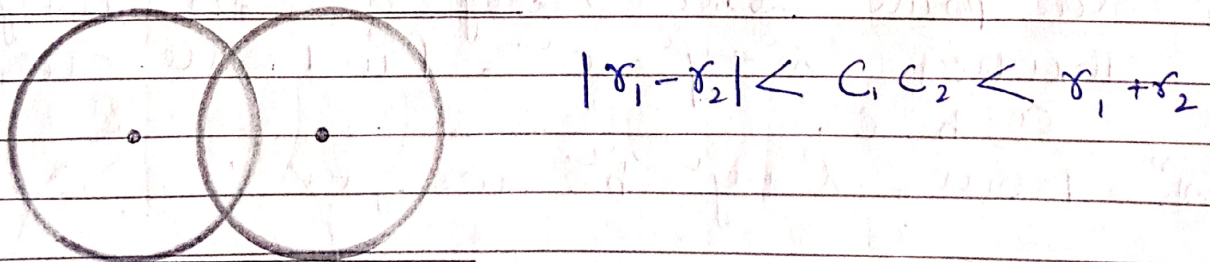 |r₁ - r₂| < C₁ C₂ < r₁ + r₂